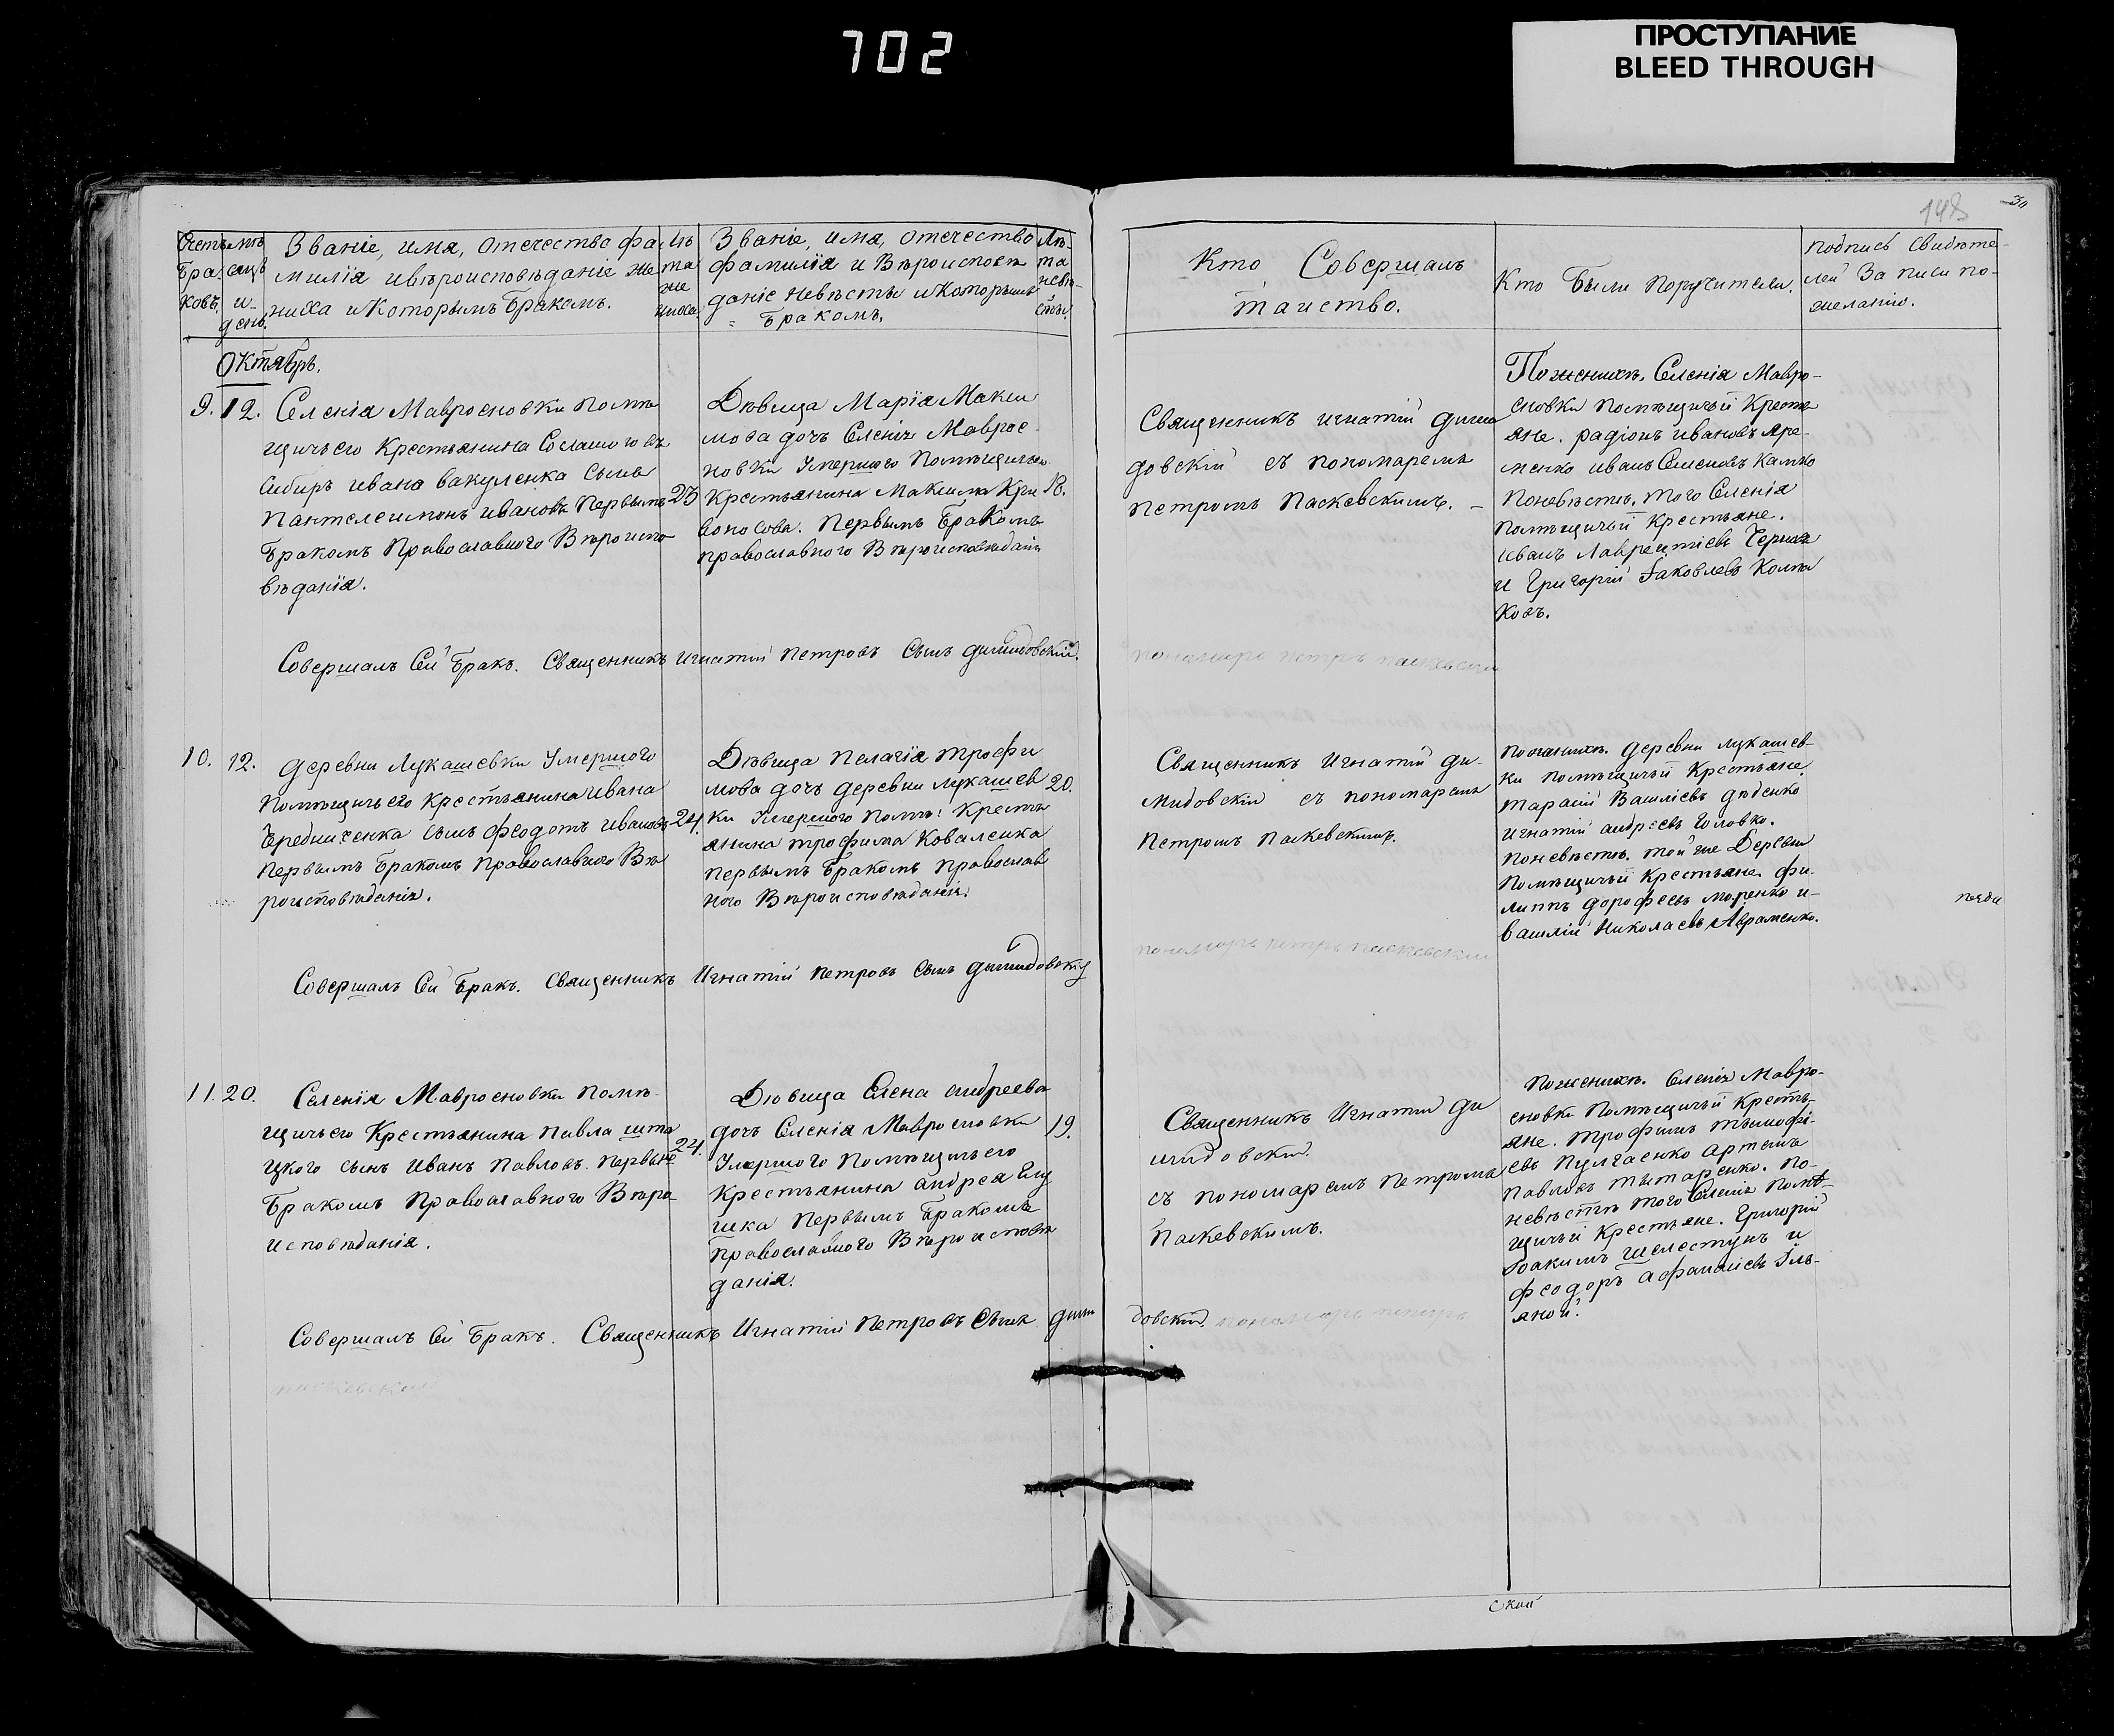 702
ПРОСТУПАНИЕ
BLEED THROUGH
148
Счетъ
бра-
ковъ.
мѣ-
сяцъ
и
день.
Званіе, имя, отечество фа-
милія и вѣроисповѣданіе же
ниха и которымъ бракомъ.
Лѣ
та
же
ниха.
Званіе, имя, отечество
фамилія и Вѣроисповѣ
даніе невѣсты и которымъ
бракомъ.
Лѣ-
та
невѣ-
сты.
Кто Совершалъ
таиство.
Кто были поручители.
подпись свидѣте-
лей записи по-
желанію.
Октябрь.
9. 12.
Селенія Мавроеновки помѣ
щичьего Крестьянина Сосланного въ
Сибирь ивана вакуленка сынъ
Пантелеимонъ ивановъ Первымъ
бракомъ Православного Вѣроиспо
вѣданія.
23
Дѣвица Марія Макси
мова дочь Селенія Мавроe-
новки Умершого Помѣщичьего
Крестьянина Максима Кри
воносова. Первымъ бракомъ
православного Вѣроисповѣданія
18.
Священникъ игнатій Дими
довскій съ пономаремъ
петромъ Паскевскимъ.
По женихѣ. Селенія Мавро-
еновки помѣщичьи Кресть
яне. радіонъ ивановъ Яре-
менко иванъ Семеновъ
По невѣстѣ. того Селенія
помѣщичьи крестьяне.
иванъ Лаврентіевъ
и Григорій Іаковлевъ Колпа
ковъ.
Совершалъ Сей бракъ. Священникъ Игнатій петровъ Сынъ димидовскій.
пономарь петръ паскевскій
10. 12.
деревни Лукашевки Умершого
помѣщичьего крестьянина ивана
Чередниченка сынъ феодотъ ивановъ
первымъ бракомъ православного Вѣ
роисповѣданія.
24.
Дѣвица пелагія трофи
мова дочь деревни лукашев
ки Умершого помѣщ: кресть
янина трофима Коваленка
первымъ бракомъ православ
ного Вѣроисповѣданія.
20.
Священникъ Игнатій ди-
мидовскій съ пономаремъ
петромъ паскевскимъ.
По женихѣ. деревни лукашев-
ки помѣщичьи крестьяне.
тарасій Василіевъ дѣденко
игнатій андреевъ Головко.
по невѣстѣ. той же Деревни
помѣщичьи крестьяне. фи-
липпъ дорофеевъ моренко и-
василій Николаевъ Авраменко.
Совершалъ Сей бракъ. Священникъ Игнатій петровъ Сынъ димидовскій
пономарь петръ паскевскій
11. 20.
Селенія Мавроеновки помѣ-
щичьего Крестьянина павла шта
цкого сынъ иванъ павловъ. первымъ
бракомъ православного Вѣро-
исповѣданія.
24.
Дѣвица Елена андреева
дочь Селенія Мавроеновки
Умершого помѣщичьего
крестьянина андрея
первымъ бракомъ
православного Вѣроисповѣ
данія.
19.
Священникъ Игнатій ди
мидовскій
съ пономаремъ петромъ
паскевскимъ.
По женихѣ. Селенія Мавро-
еновки помѣщичьи кресть-
яне. трофимъ тимофі-
евъ артемъ
павловъ тытаренко. По-
невѣстѣ того Селенія помѣ-
щичьи крестьяне. Григорій
Іоакимъ шелестунъ и
феодоръ афанасіевъ Уль-
яной.
Совершалъ Сей бракъ. Священникъ Игнатій петровъ Сынъ дими довскій. пономарь петръ
паскевскій